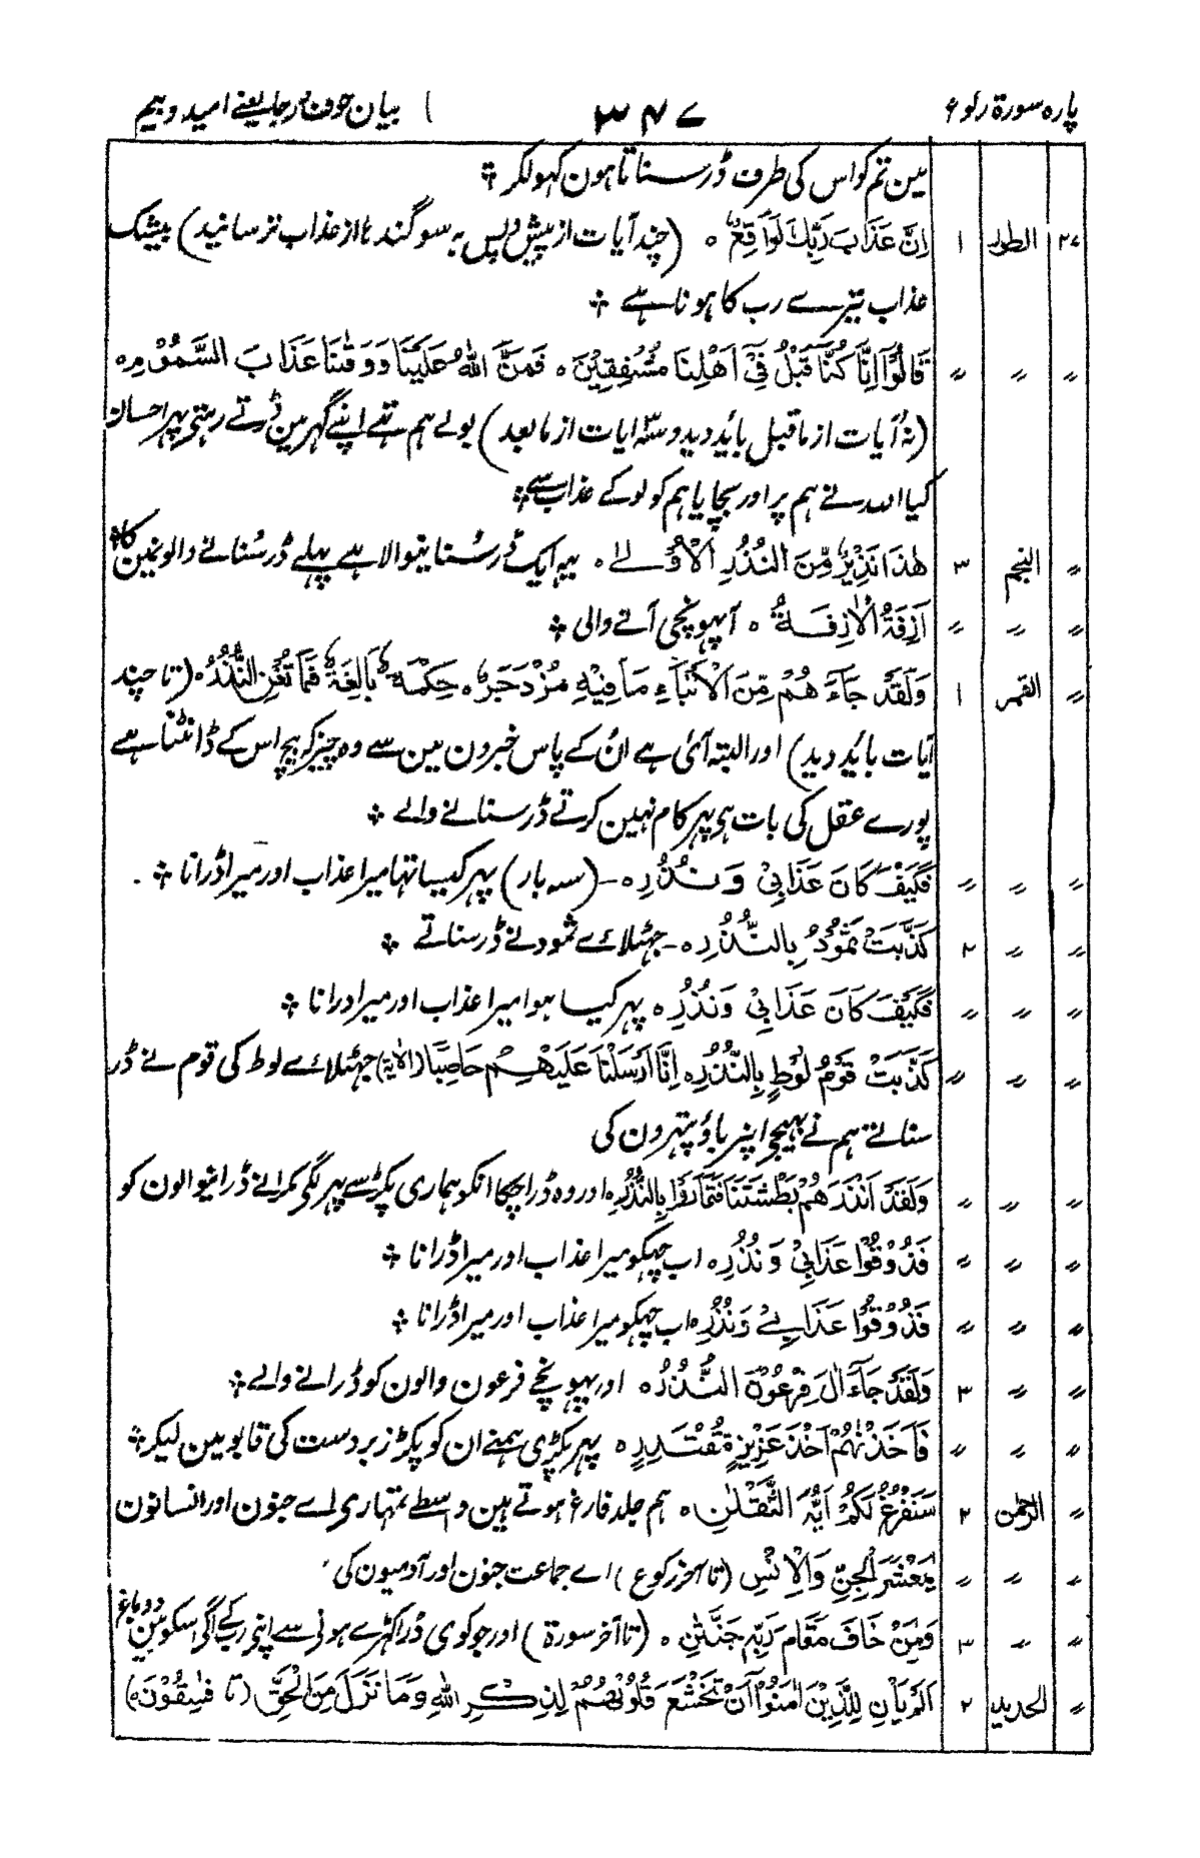 پارہ سورۃ رکوع ۳۴۷ بیان خوف و رجا یعنے امید و بیم
مین تم کو اس کی طرف ڈر سناتا ہون کہولکر ❊
۲۷ الطور ۱ اِنَّ عَذَابَ رَبِّكَ لَوَاقِعٌ ہ (چند آیات از پیش و پس بہ سوگندہا از عذاب ترسانید) بیشک
عذاب تیرے رب کا ہونا ہے ❊
〃 〃 〃 قَالُوْٓا اِنَّا كُنَّا قَبْلُ فِيْٓ اَهْلِنَا مُشْفِقِيْنَ ہ فَمَنَّ اللّٰهُ عَلَيْنَا وَوَقٰىنَا عَذَابَ السَّمُوْمِ ہ
(نہ آیات از ماقبل باید دید و سہ آیات از مابعد) بولے ہم تہے اپنے گہر مین ڈرتے رہتے پہر احسان
کیا اللہ نے ہم پر اور بچایا ہم کو لو کے عذاب سے ❊
〃 النجم ۳ هٰذَا نَذِيْرٌ مِّنَ النُّذُرِ الْاُوْلٰى ہ یہ ایک ڈر سنانیوالا ہے پہلے ڈر سنانے والونمین کا ❊
〃 〃 〃 اَزِفَةِ الْاٰزِفَةُ ہ آپہونچی آنے والی ❊
〃 القمر ۱ وَلَقَدْ جَآءَهُمْ مِّنَ الْاَنْۢبَآءِ مَا فِيْهِ مُزْدَجَرٌ ہ حِكْمَةٌۢ بَالِغَةٌ فَمَا تُغْنِ النُّذُرُ ہ (تا چند
آیات باید دید) اور البتہ آئی ہے ان کے پاس خبرون مین سے وہ چیز کہ بیچ اس کے ڈانٹنا ہے
پورے عقل کی بات ہی پہر کام نہین کرتے ڈر سنانے والے ❊
〃 〃 〃 فَكَيْفَ كَانَ عَذَابِيْ وَنُذُرِ ہ - (سہ بار) پہر کیسا تہا میرا عذاب اور میرا ڈرانا ❊
〃 〃 ۲ كَذَّبَتْ ثَمُوْدُ بِالنُّذُرِ ہ - جہٹلائے ثمود نے ڈر سناتے ❊
〃 〃 〃 فَكَيْفَ كَانَ عَذَابِيْ وَنُذُرِ ہ پہر کیسا ہوا میرا عذاب اور میرا درانا ❊
〃 〃 〃 كَذَّبَتْ قَوْمُ لُوْطٍۢ بِالنُّذُرِ ہ اِنَّآ اَرْسَلْنَا عَلَيْهِمْ حَاصِبًا (الآیۃ) جہٹلائے لوط کی قوم نے ڈر
سناتے ہم نے بہیجے اپنر باؤ پتہرون کی
〃 〃 〃 وَلَقَدْ اَنْذَرَهُمْ بَطْشَتَنَا فَتَمَارَوْا بِالنُّذُرِ ہ اور وہ ڈرا چکا انکو ہماری پکڑ سے پہر لگی مکرانے ڈرانیوالون کو
〃 〃 〃 فَذُوْقُوْا عَذَابِيْ وَنُذُرِ ہ اب چہکو میرا عذاب اور میرا ڈرانا ❊
〃 〃 〃 فَذُوْقُوْا عَذَابِيْ وَنُذُرِ ہ اب چہکو میرا عذاب اور میرا ڈرانا ❊
〃 〃 ۳ وَلَقَدْ جَآءَ اٰلَ فِرْعَوْنَ النُّذُرُ ہ اور پہونچے فرعون والون کو ڈرانے والے ❊
〃 〃 〃 فَاَخَذْنٰهُمْ اَخْذَ عَزِيْزٍ مُّقْتَدِرٍ ہ پہر پکڑی ہمنے ان کو پکڑ زبردست کی قابو مین لیکر ❊
〃 الرحمن ۲ سَنَفْرُغُ لَكُمْ اَيُّهَ الثَّقَلٰنِ ہ ہم جلد فارغ ہوتے ہین واسطے تمہاری اے جنون اور انسانون
〃 〃 〃 يٰمَعْشَرَ الْجِنِّ وَالْاِنْسِ (تا آخر رکوع) اے جماعت جنون اور آدمیون کی
〃 〃 ۳ وَلِمَنْ خَافَ مَقَامَ رَبِّهٖ جَنَّتٰنِ ہ (تا آخر سورۃ) اور جو کوی ڈرا کہڑے ہونی سے اپنی رب کے آگی اسکو ہین دو باغ
〃 الحدید ۲ اَلَمْ يَاْنِ لِلَّذِيْنَ اٰمَنُوْٓا اَنْ تَخْشَعَ قُلُوْبُهُمْ لِذِكْرِ اللّٰهِ وَمَا نَزَلَ مِنَ الْحَقِّ (تا فٰسِقُوْنَ ہ)